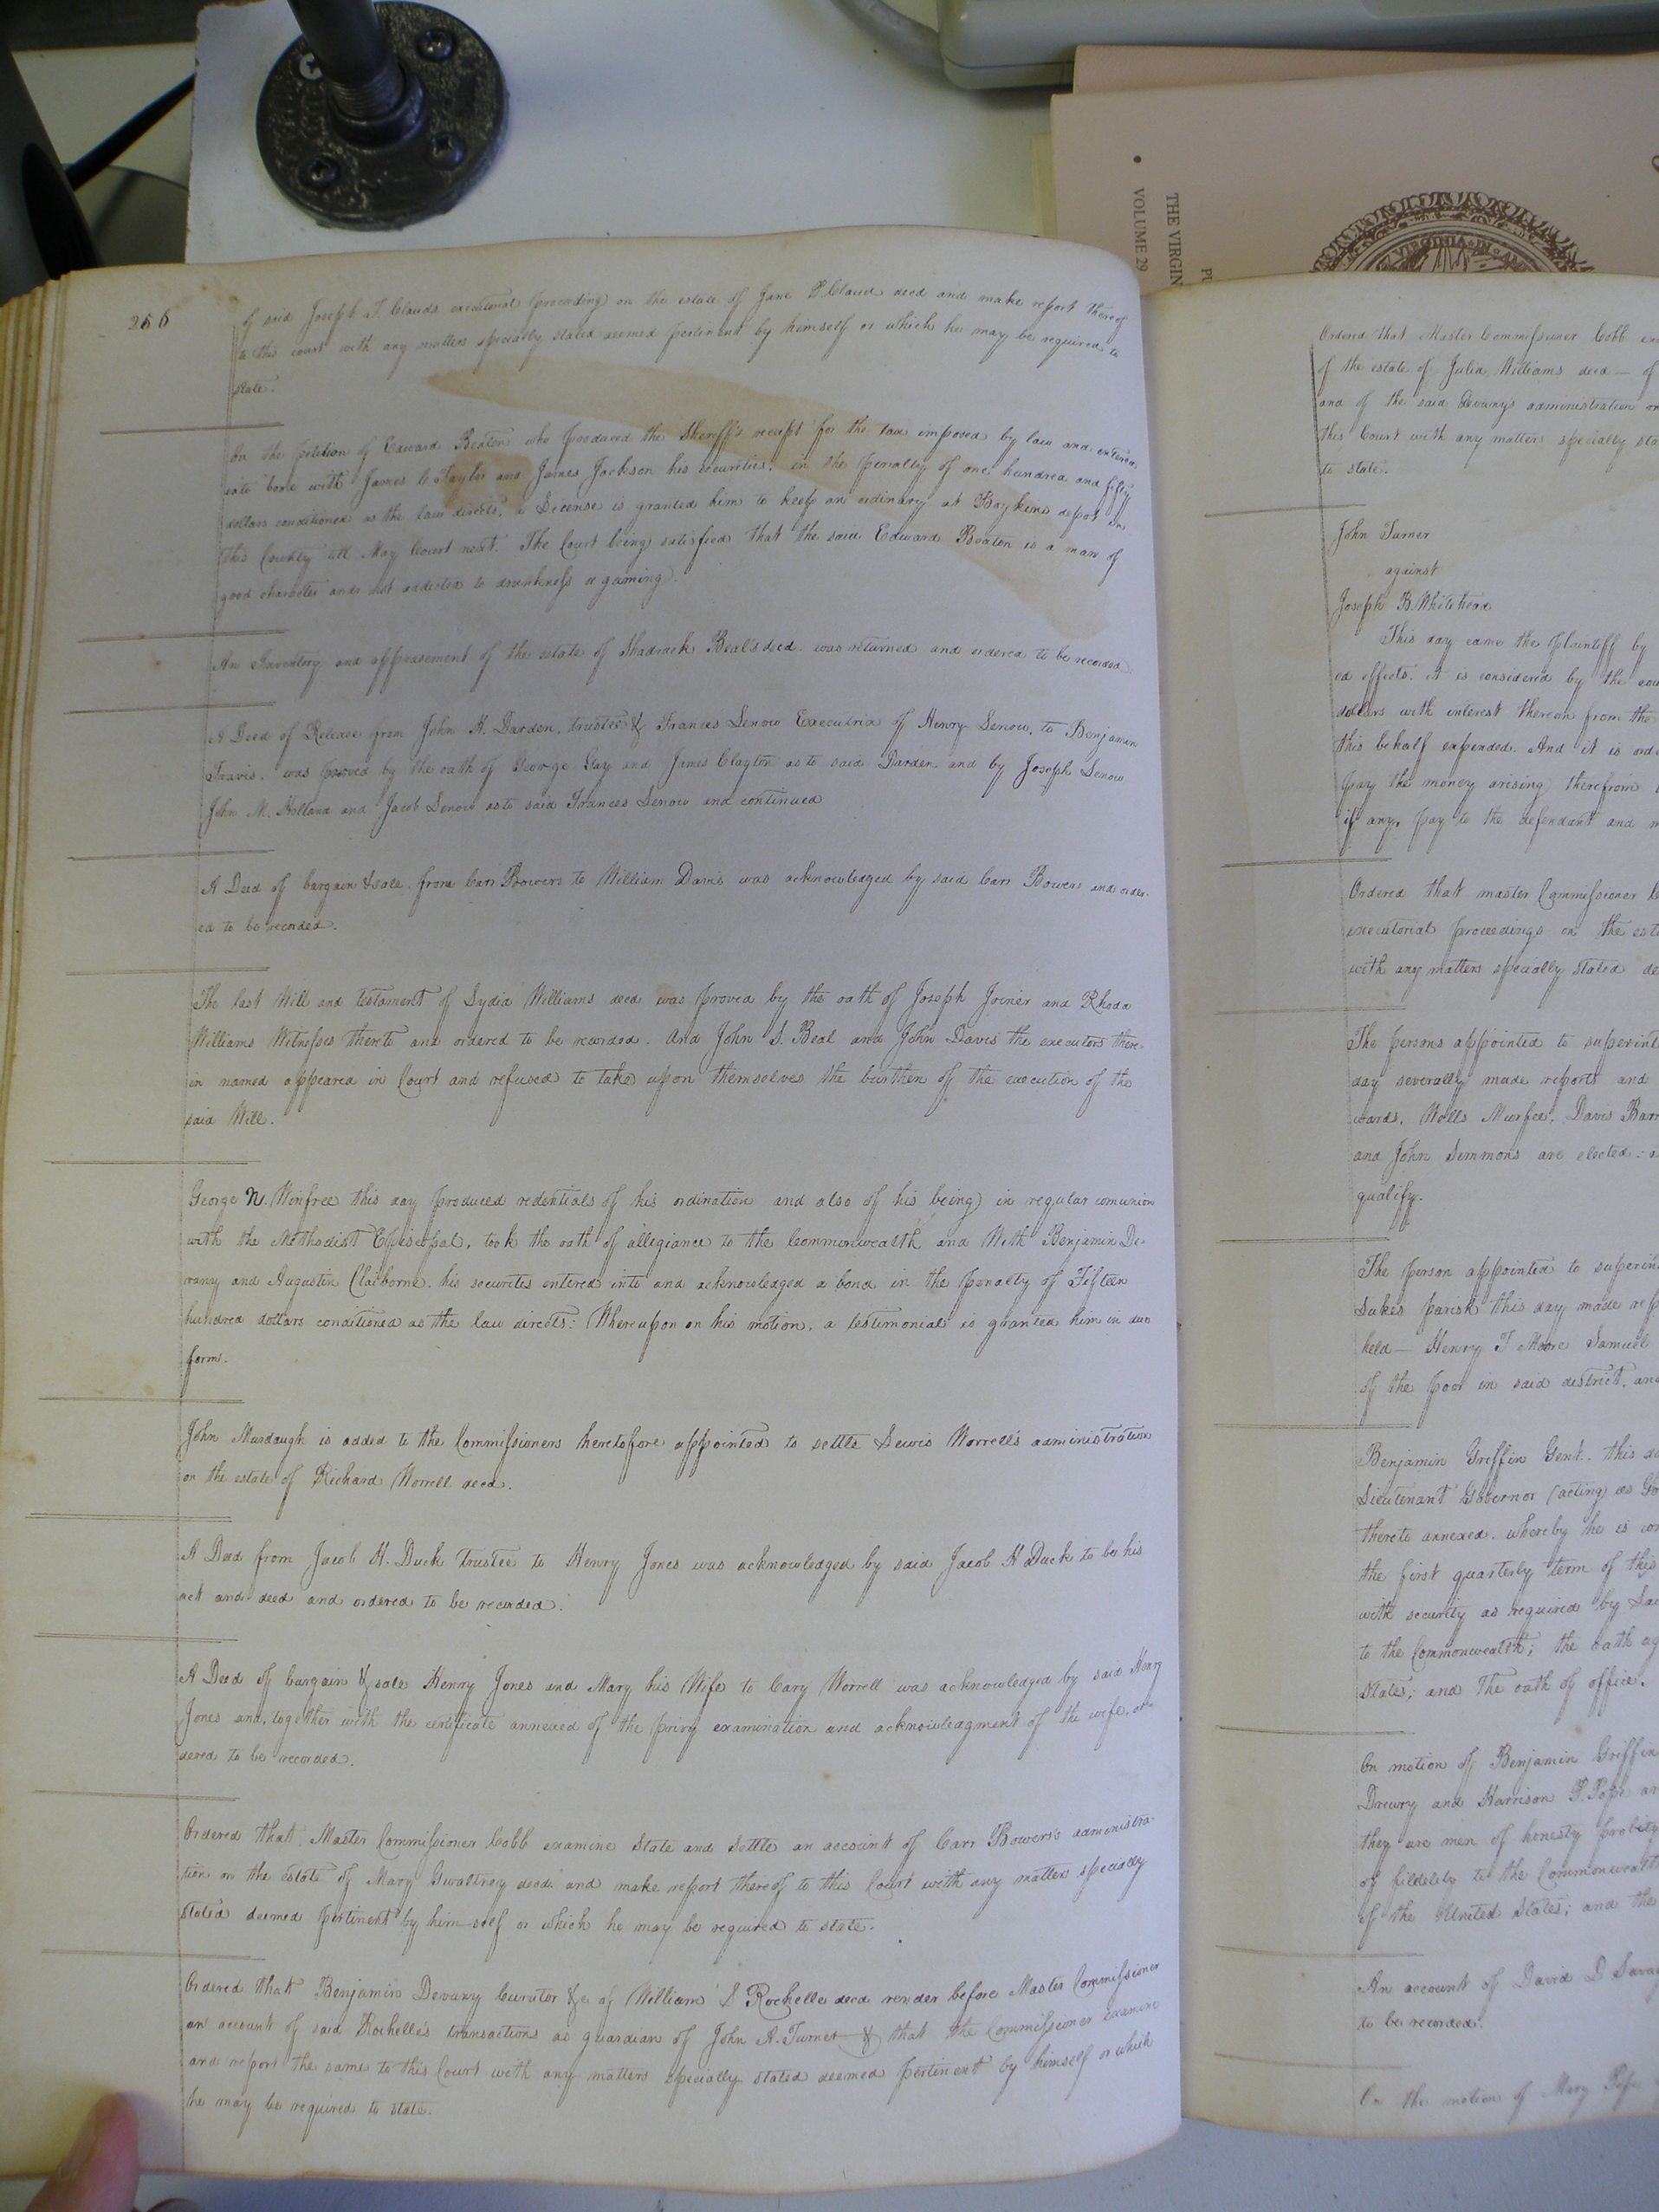 THE VIRGIN
VOLUME 29
VIRGINIA
266
of said Joseph T. Clauds executorial proceedings on the estate of Jane P. Claud decd and make report thereof
to this court with any matters specially stated deemed pertinent by himself or which he may be required to
state.
On the petition of Edward Beaton who produced the Sheriff's receipt for the tax imposed by law and entered
into bond with James C Taylor and James Jackson his securities, in the penalty of one hundred and fifty
dollars conditioned as the law directs, a License is granted him to keep an ordinary at Boykins depot in
this County till May Court next. The Court being satisfied that the said Edward Beaton is a man of
good character and not addicted to drunkness or gaming.
An Inventory and appraisement of the estate of Shadrack Beal's decd. was returned and ordered to be recorded.
A Deed of Release from John H. Darden, trustee & Frances Lenow Executrix of Henry Lenow, to Benjamin
Travis, was proved by the oath of George Gay and James Clayton as to said Darden and by Joseph Lenow
John M. Holland and Jacob Lenow as to said Frances Lenow and continued
A Deed of bargain & sale from Carr Bowers to William Davis was acknowledged by said Carr Bowers and order-
ed to be recorded.
The last Will and testament of Lydia Williams decd was proved by the oath of Joseph Joiner and Rhoda
Williams Witnesses thereto and ordered to be recorded. And John S. Beal and John Davis the executors there-
in named appeared in Court and refused to take upon themselves the burthen of the execution of the
said Will.
George N. Winfree this day produced redentials of his ordination and also of his being in regular comunion
with the Methodist Episcopal, took the oath of allegiance to the Commonwealth and With Benjamin De-
vany and Augustin Claiborne, his securites entered into and acknowledged a bond in the penalty of Fifteen
hundred dollars conditioned as the law directs: Whereupon on his motion, a testimonial is granted him in due
form.
John Murdaugh is added to the Commissioners heretofore appointed to settle Lewis Worrell's administration
on the estate of Richard Worrell decd.
A Deed from Jacob H. Duck Trustee to Henry Jones was acknowledged by said Jacob H Duck to be his
act and deed and ordered to be recorded.
A Deed of bargain & sale Henry Jones and Mary his Wife to Cary Worrell was acknowledged by said Henry
Jones and, together with the certificate annexed of the privy examination and acknowledgment of the wife, or-
dered to be recorded.
Ordered that Master Commissioner Cobb examine State and Settle an account of Carr Bowers's administra-
tion on the estate of Mary Gwaltney decd. and make report thereof to this Court with any matters specially
stated deemed pertinent by him-self or which he may be required to state.
Ordered that Benjamin Devany Curator &c of William S Rochelle decd render before Master Commissioner
an account of said Rochelle's transactions as guardian of John A. Turner & that the Commissioner examine
and report the same to this Court with any matters specially stated deemed pertinent by himself or which
he may be required to state.
Ordered that Master Commissioner Cobb
of the estate of Julia Williams decd — of
and of the said Devany's administration
this Court with any matters specially
to state.
John Turner
against
Joseph B. Whitehead
This day came the plaintiff by
ed effects. it is considered by the
dollars with interest thereon from the
this behalf expended. And it is
pay the money arising therefrom
if any, pay to the defendant and
Ordered that master Commissioner
executorial proceedings on the
with any matters specially stated
The persons appointed to
day severally made reports and
wards, Wells Murfee, Davis
and John Simmons are elected
qualify.
The person appointed to
Lukes parish this day made
held — Henry T Moore Samuel
of the poor in said district, and
Benjamin Griffin Gent. this
Lieutenant Governor (acting as
thereto annexed, whereby he is
the first quarterly term of this
with security as required by
to the Commonwealth; the oath
States; and The oath of office.
On motion of Benjamin Griffin
Drewry and Harrison P. Pope
they are men of honesty probity
of fidelity to the Commonwealth
of the United States; and the
An account of David D
to be recorded.
On the motion of Mary Pope